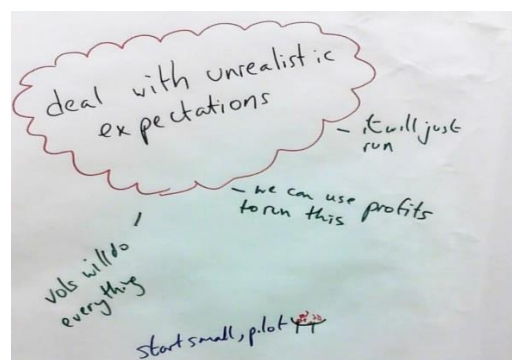 deal with unrealistic
expectations
- it will just
run
- we can use profits
to run this
vols will do
everything
start small, pilot